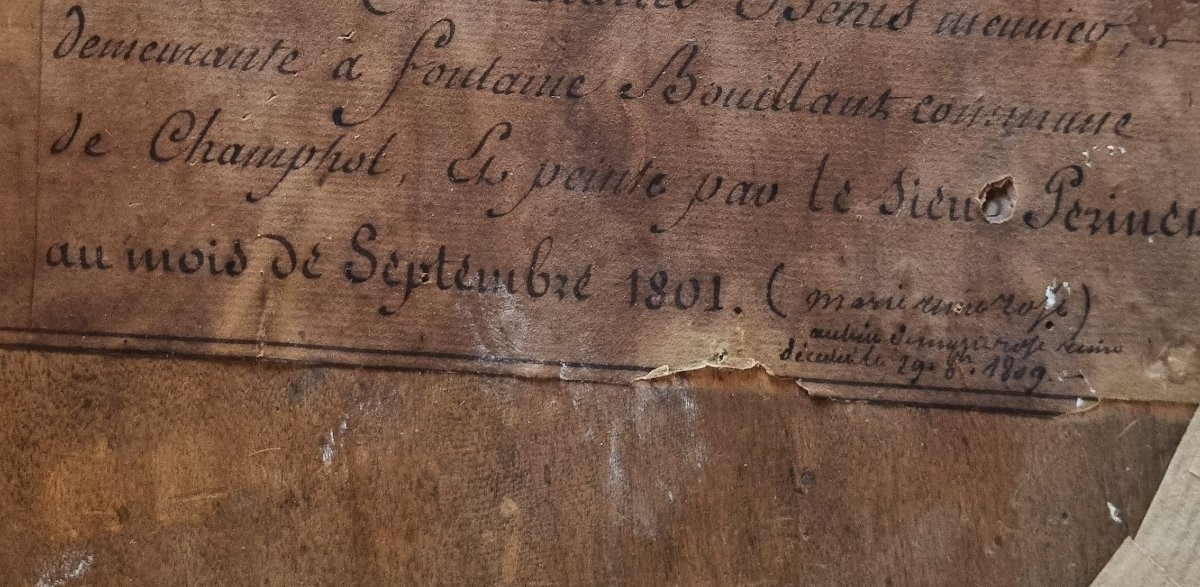 Denis meunier,
demeurante à fontaine Bouillant commune
de Champhol, Et peinte par le sieur Perinet
au mois de Septembre 1801. (marie anne rose)
décédée le 29. 8bre. 1809.